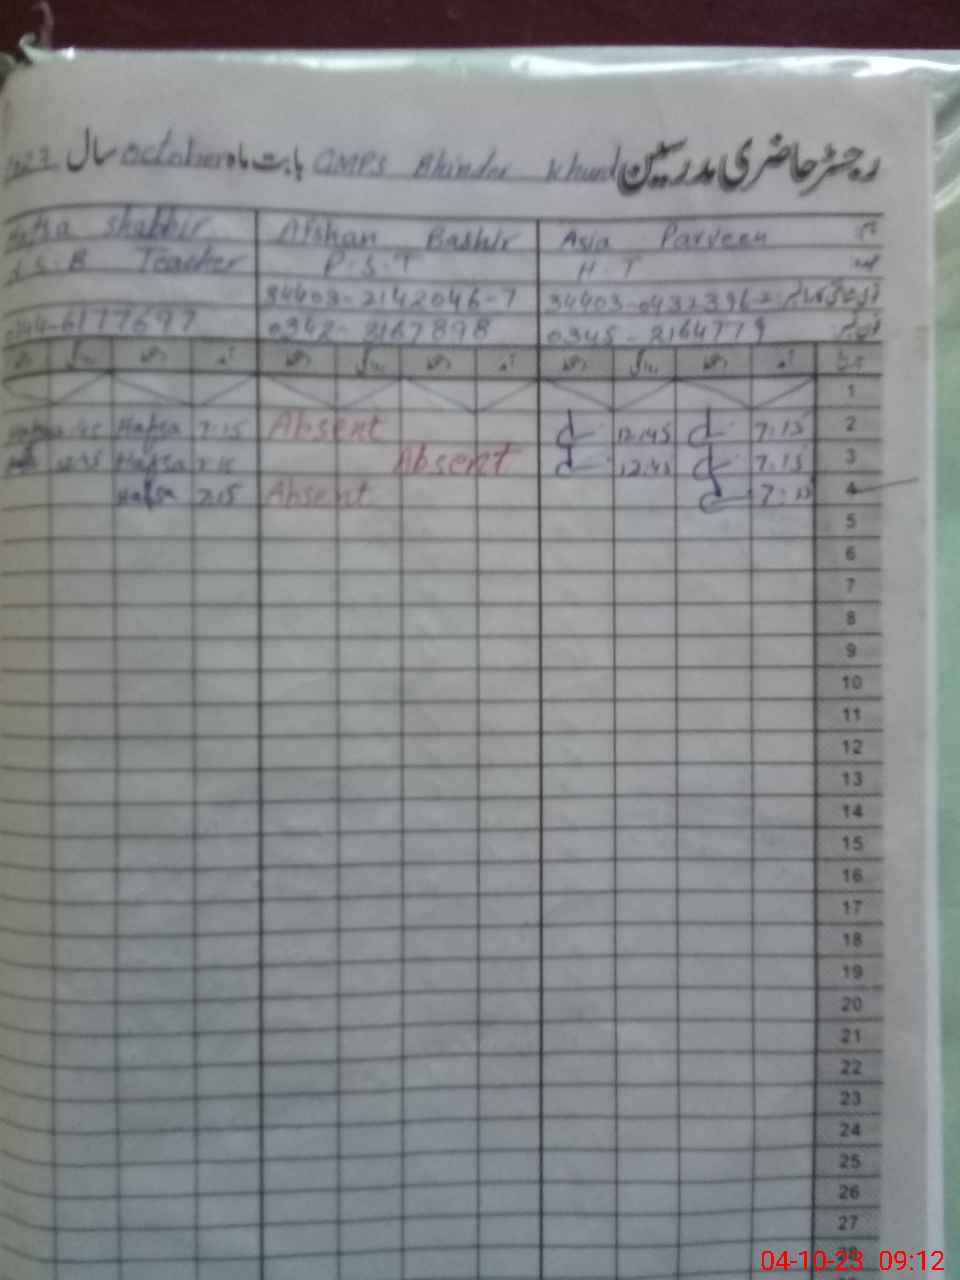 رجسٹر حاضری مدرسین GMPS Bhinder Khurd بابت ماہ October سال
نام Asia Parveen Afshan Bashir Hafsa Shabbir
عہدہ H.T P.S.T Teacher
34403-0432396-2 34403-2142046-7
فون نمبر 0345-2164779 0342-2167898 0344-6177697
تاریخ آمد دستخط روانگی دستخط آمد دستخط روانگی دستخط آمد دستخط روانگی دستخط
1
2 7:15 12:45 Absent 7:15 Hafsa
3 7:15 12:45 Absent 7:15 Hafsa
4 7:15 Absent 7:15 Hafsa
5
6
7
8
9
10
11
12
13
14
15
16
17
18
19
20
21
22
23
24
25
26
27
28
04-10-23 09:12